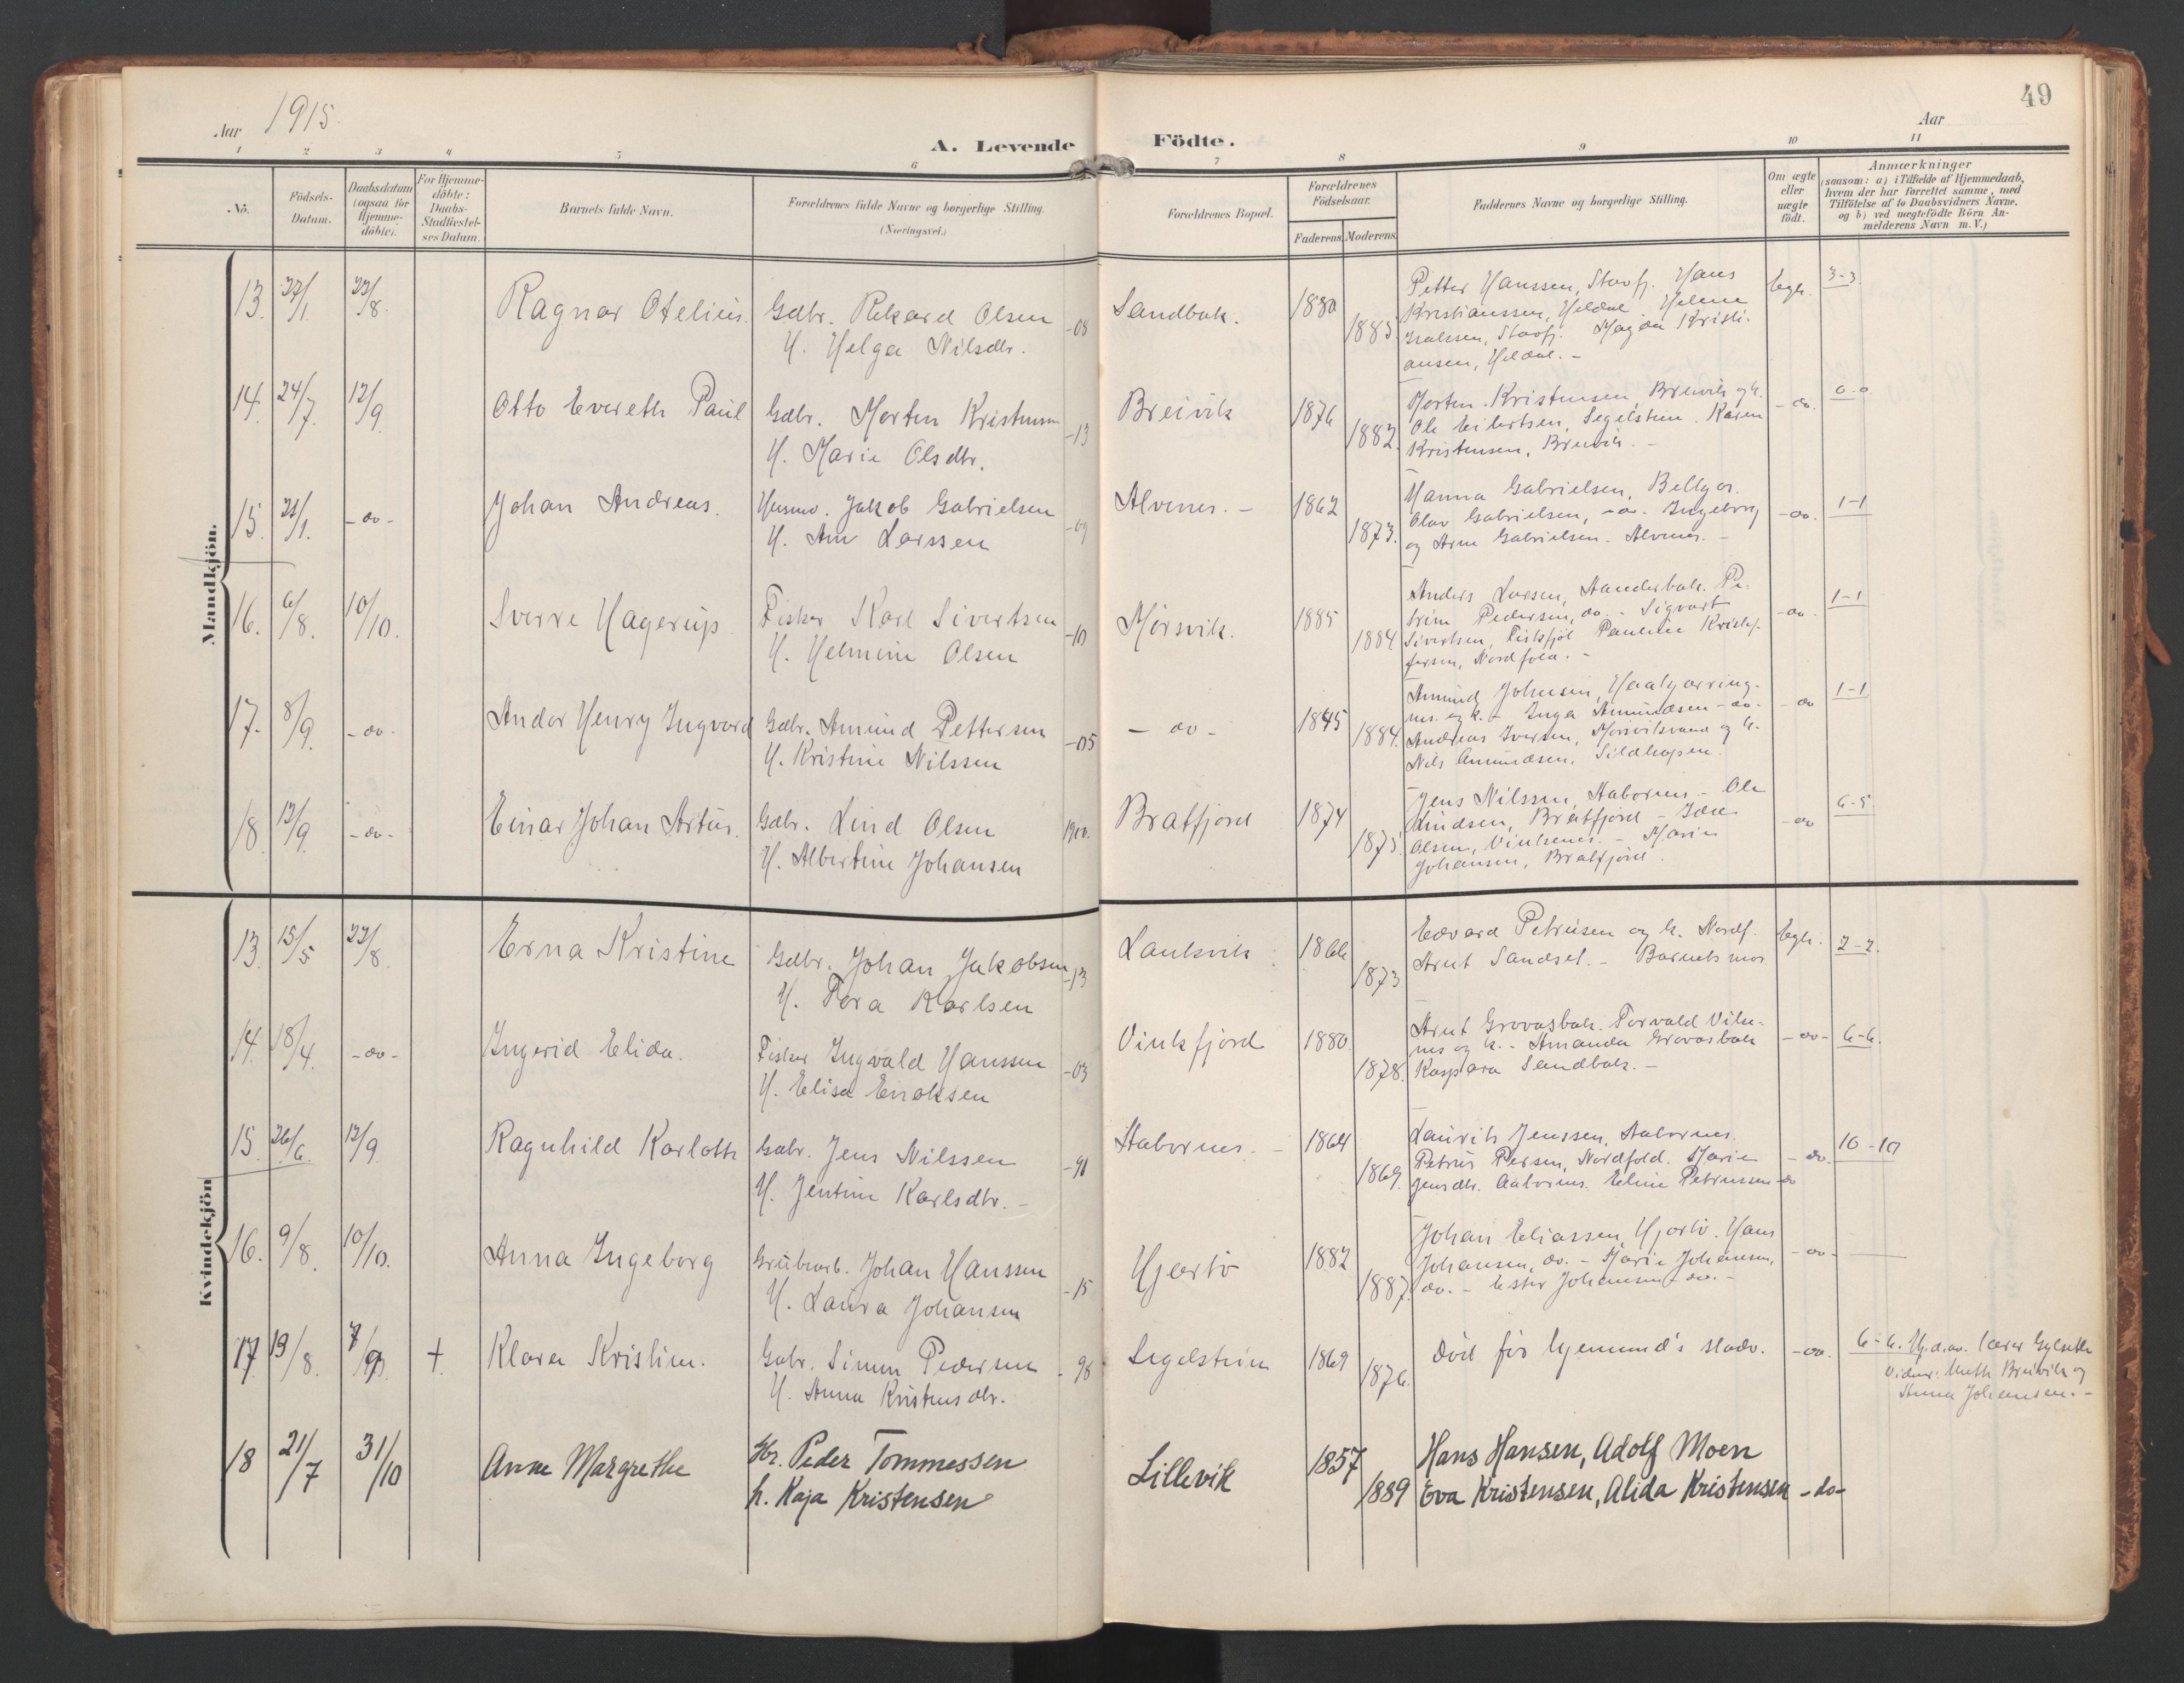 49
Aar 1915.
Aar
A. Levende Födte.
1 2 3 4 5 6 7 8 9 10 11
No.
Födsels-
Datum.
Daabsdatum
(ogsaa for
Hjemme-
döbte).
For Hjemme-
döbte:
Daabs-
Stadfæstel-
ses Datum.
Barnets fulde Navn.
Forældrenes fulde Navne og borgerlige Stilling.
(Næringsvei.)
Forældrenes Bopæl.
Forældrenes
Födselsaar.
Faderens. Moderens.
Faddernes Navne og borgerlige Stilling.
Om ægte
eller
uægte
födt.
Anmærkninger
(saasom: a) i Tilfælde af Hjemmedaab,
hvem der har forrettet samme, med
Tilföielse af to Daabsvidners Navne.
og b) ved uægtefödte Börn An-
melderens Navn m. V.)
Mandkjön.
13. 22/8. Ragnar Otelius. Gdbr. Rikard Olsen -08 Sandbak. 1880
H. Helga Nilsdtr. 1885.
Petter Hanssen, Hans
Kristianssen, Heldal. Helene
Magda Kristi-
ansen, Heldal. -
Egte. 3-3
14. 24/7. 12/9. Otto Evereth Paul Gdbr. Morten Kristensen -13 Breivik 1876
H. Marie Olsdtr. 1882.
Morten Kristensen, Breivik og h.
Ole Segelstein. Karen
Kristensen, Breivik. -
- do. 0-0
15. 21/1. - do - Johan Andreas. Jakob Gabrielsen -09 Alvenes. - 1862
H. Larssen 1873.
Hanna Gabrielsen,
Olav Gabrielsen, - do - Ingeborg
og Arne Gabrielsen - Alvenes. -
- do. 1-1
16. 6/8. 10/10. Sverre Hagerup Fisker Karl Sivertsen -10 Mørsvik. 1885
H. Helmine Olsen 1884
Anders Larsen, Pe-
trine Pedersen, do. - Sigvart
Sivertsen, Pauline Kristof-
fersen, Nordfold. -
- do 1-1
17. 8/9. - do - Andor Henry Ingvard Gdbr. Amund Pettersen -05 - do - 1845
H. Kristine Nilssen 1884.
Amund Johnsen,
nes. og h. - Inga Amundsen - do -
Andreas Iversen, Mørsvikvand og h.
Nils Amundsen, Sildhopen.
- do 1-1
18. 12/9. - do - Einar Johan Artur. Gdbr. Lind Olsen 1900. Bratfjord 1874
H. Albertine Johansen 1875
Jens Nilssen, - Ole
Lindsen, Bratfjord -
Olsen, Vinkenes. - Marie
Johansen, Bratfjord.
- do 6-5
Kvindekjön
13. 15/5 22/8. Erna Kristine Gdbr. Johan Jakobsen -13 Laukvik 1866
H. Tora Karlsen 1873
Edvard Petrusen og h. Nordf.
Arnt Sandset. - Barnets mor.
Egte. 2-2.
14. 18/4. - do - Ingerid Elida. Fisker Ingvald Hanssen -03 Vinkfjord 1880
H. Elisa Enoksen 1878.
Arnt Grovasbak. Torvald
nes og h. - Amanda Grovasbak
Kaspara Sandbak. -
- do - 6-6.
15. 26/6. 12/9. Ragnhild Karlotte Gdbr. Jens Nilssen -91 Aabornes. - 1864
H. Jentine Karlsdtr. - 1869.
Laurits Jenssen, Aabornes.
Petrus Persen, Nordfold. Marie
Jensdtr. Aabornes. Eline Petrussen - do
- do. 10-10
16. 9/8. 10/10. Anna Ingeborg Grubearb. Johan Hanssen -15 Hjartø 1882
H. Laura Johansen 1887.
Johan Eliassen, Hjartø. Hans
Johansen, do. - Marie Johansen,
do. - Ester Johansen - do. -
- do -
17. 19/8. 7/9. + Klara Kristine. Gdbr. Simon Pedersen - 98 Segelstein 1869
H. Anna Kristensdtr. 1876.
Død før hjemmed's stadf.
- do. 6-6. Hj.d. av. lærer
Vidner: Breivik og
Anna Johansen. -
18 21/7 31/10 Anne Margrethe Gbr. Peder Tommessen Lillevik 1857
h. Kaja Kristensen 1889
Hans Hansen, Adolf Moen
Eva Kristensen, Alida Kristensen - do -